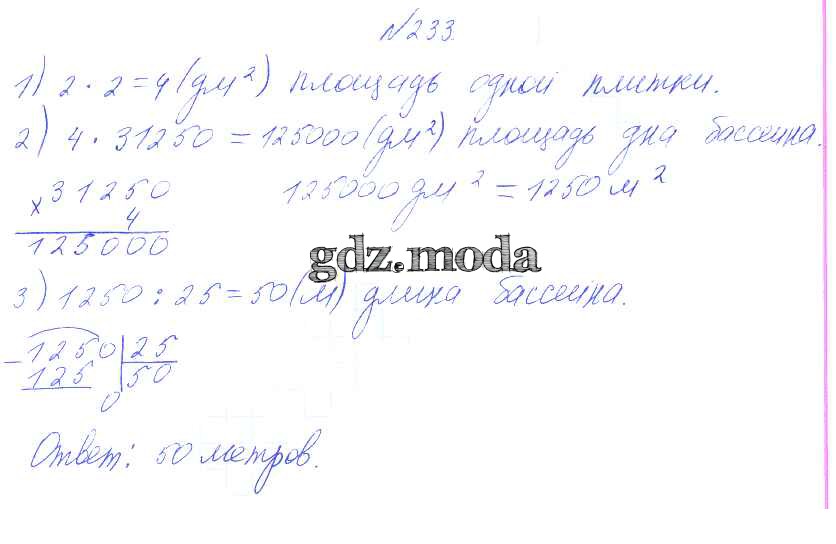 №233.
1) 2 · 2 = 4 (дм²) площадь одной плитки.
2) 4 · 31250 = 125000 (дм²) площадь дна бассейна.
×31250
4
125000
125000 дм² = 1250 м²
gdz.moda
3) 1250 : 25 = 50 (м) длина бассейна.
-1250 25
125 50
0
Ответ: 50 метров.